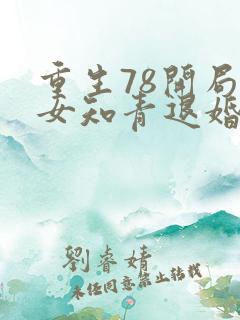 重生78開局
女知青退婚
劉睿婧
未经同意禁止转载